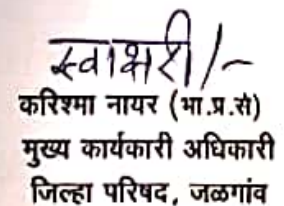 स्वाक्षरी/-
करिश्मा नायर (भा.प्र.से)
मुख्य कार्यकारी अधिकारी
जिल्हा परिषद, जळगांव